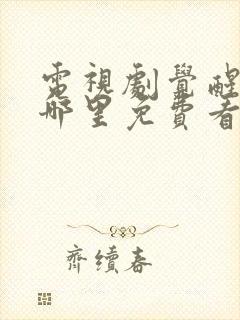 電視劇覺醒
哪里免費看
齊續春